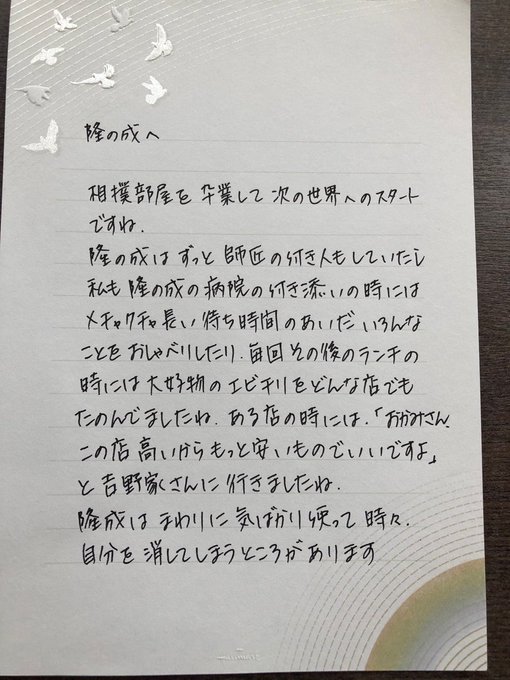 隆の成へ
相撲部屋を卒業して次の世界へのスタート
ですね.
隆の成はずっと師匠の付き人もしていたし
私も隆の成の病院の付き添いの時には
メチャクチャ長い待ち時間のあいだいろんな
ことをおしゃべりしたり.毎回その後のランチの
時には大好物のエビチリをどんな店でも
たのんでましたね.ある店の時には.「おかみさん.
この店高いからもっと安いものでいいですよ」
と吉野家さんに行きましたね.
隆成はまわりに気ばかり使って時々.
自分を消してしまうところがあります